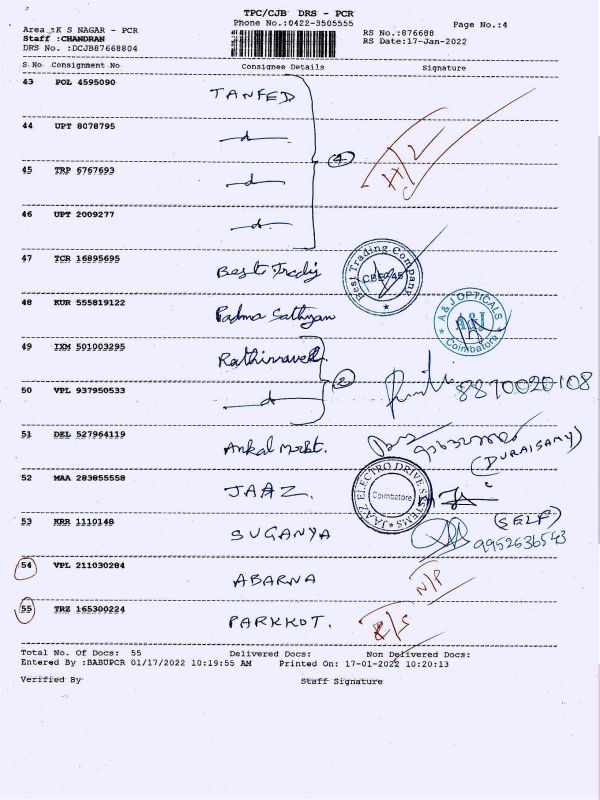 TPC/CJB DRS - PCR
Phone No.:0422-3505555
Page No.:4
Area :K S NAGAR - PCR
Staff :CHANDRAN
DRS No. :DCJB87668804
RS No.:876688
RS Date:17-Jan-2022
S No Consignment No Consignee Details Signature
43 POL 4595090 TANFED
44 UPT 8078795
45 TRP 6767693
46 UPT 2009277
4
47 TCR 16895695 Best Trading
Best Trading Company
48 KUR 555819122 Padma Sathyan
A & J OPTICALS
A&J
Coimbatore
49 IXM 501003295 Rathinavel
50 VPL 937950533
2
8870020108
51 DEL 527964119 Ankal
(DURAISAMY)
52 MAA 283855558 JAAZ.
JAAZ ELECTRO DRIVE SYSTEMS
Coimbatore
53 KRR 1110148 SUGANYA
(SELF)
9952636543
54 VPL 211030284 ABARNA N/P
55 TRZ 165300224 PARKKOT. R/S
Total No. Of Docs: 55 Delivered Docs: Non Delivered Docs:
Entered By :BABUPCR 01/17/2022 10:19:55 AM Printed On: 17-01-2022 10:20:13
Verified By Staff Signature